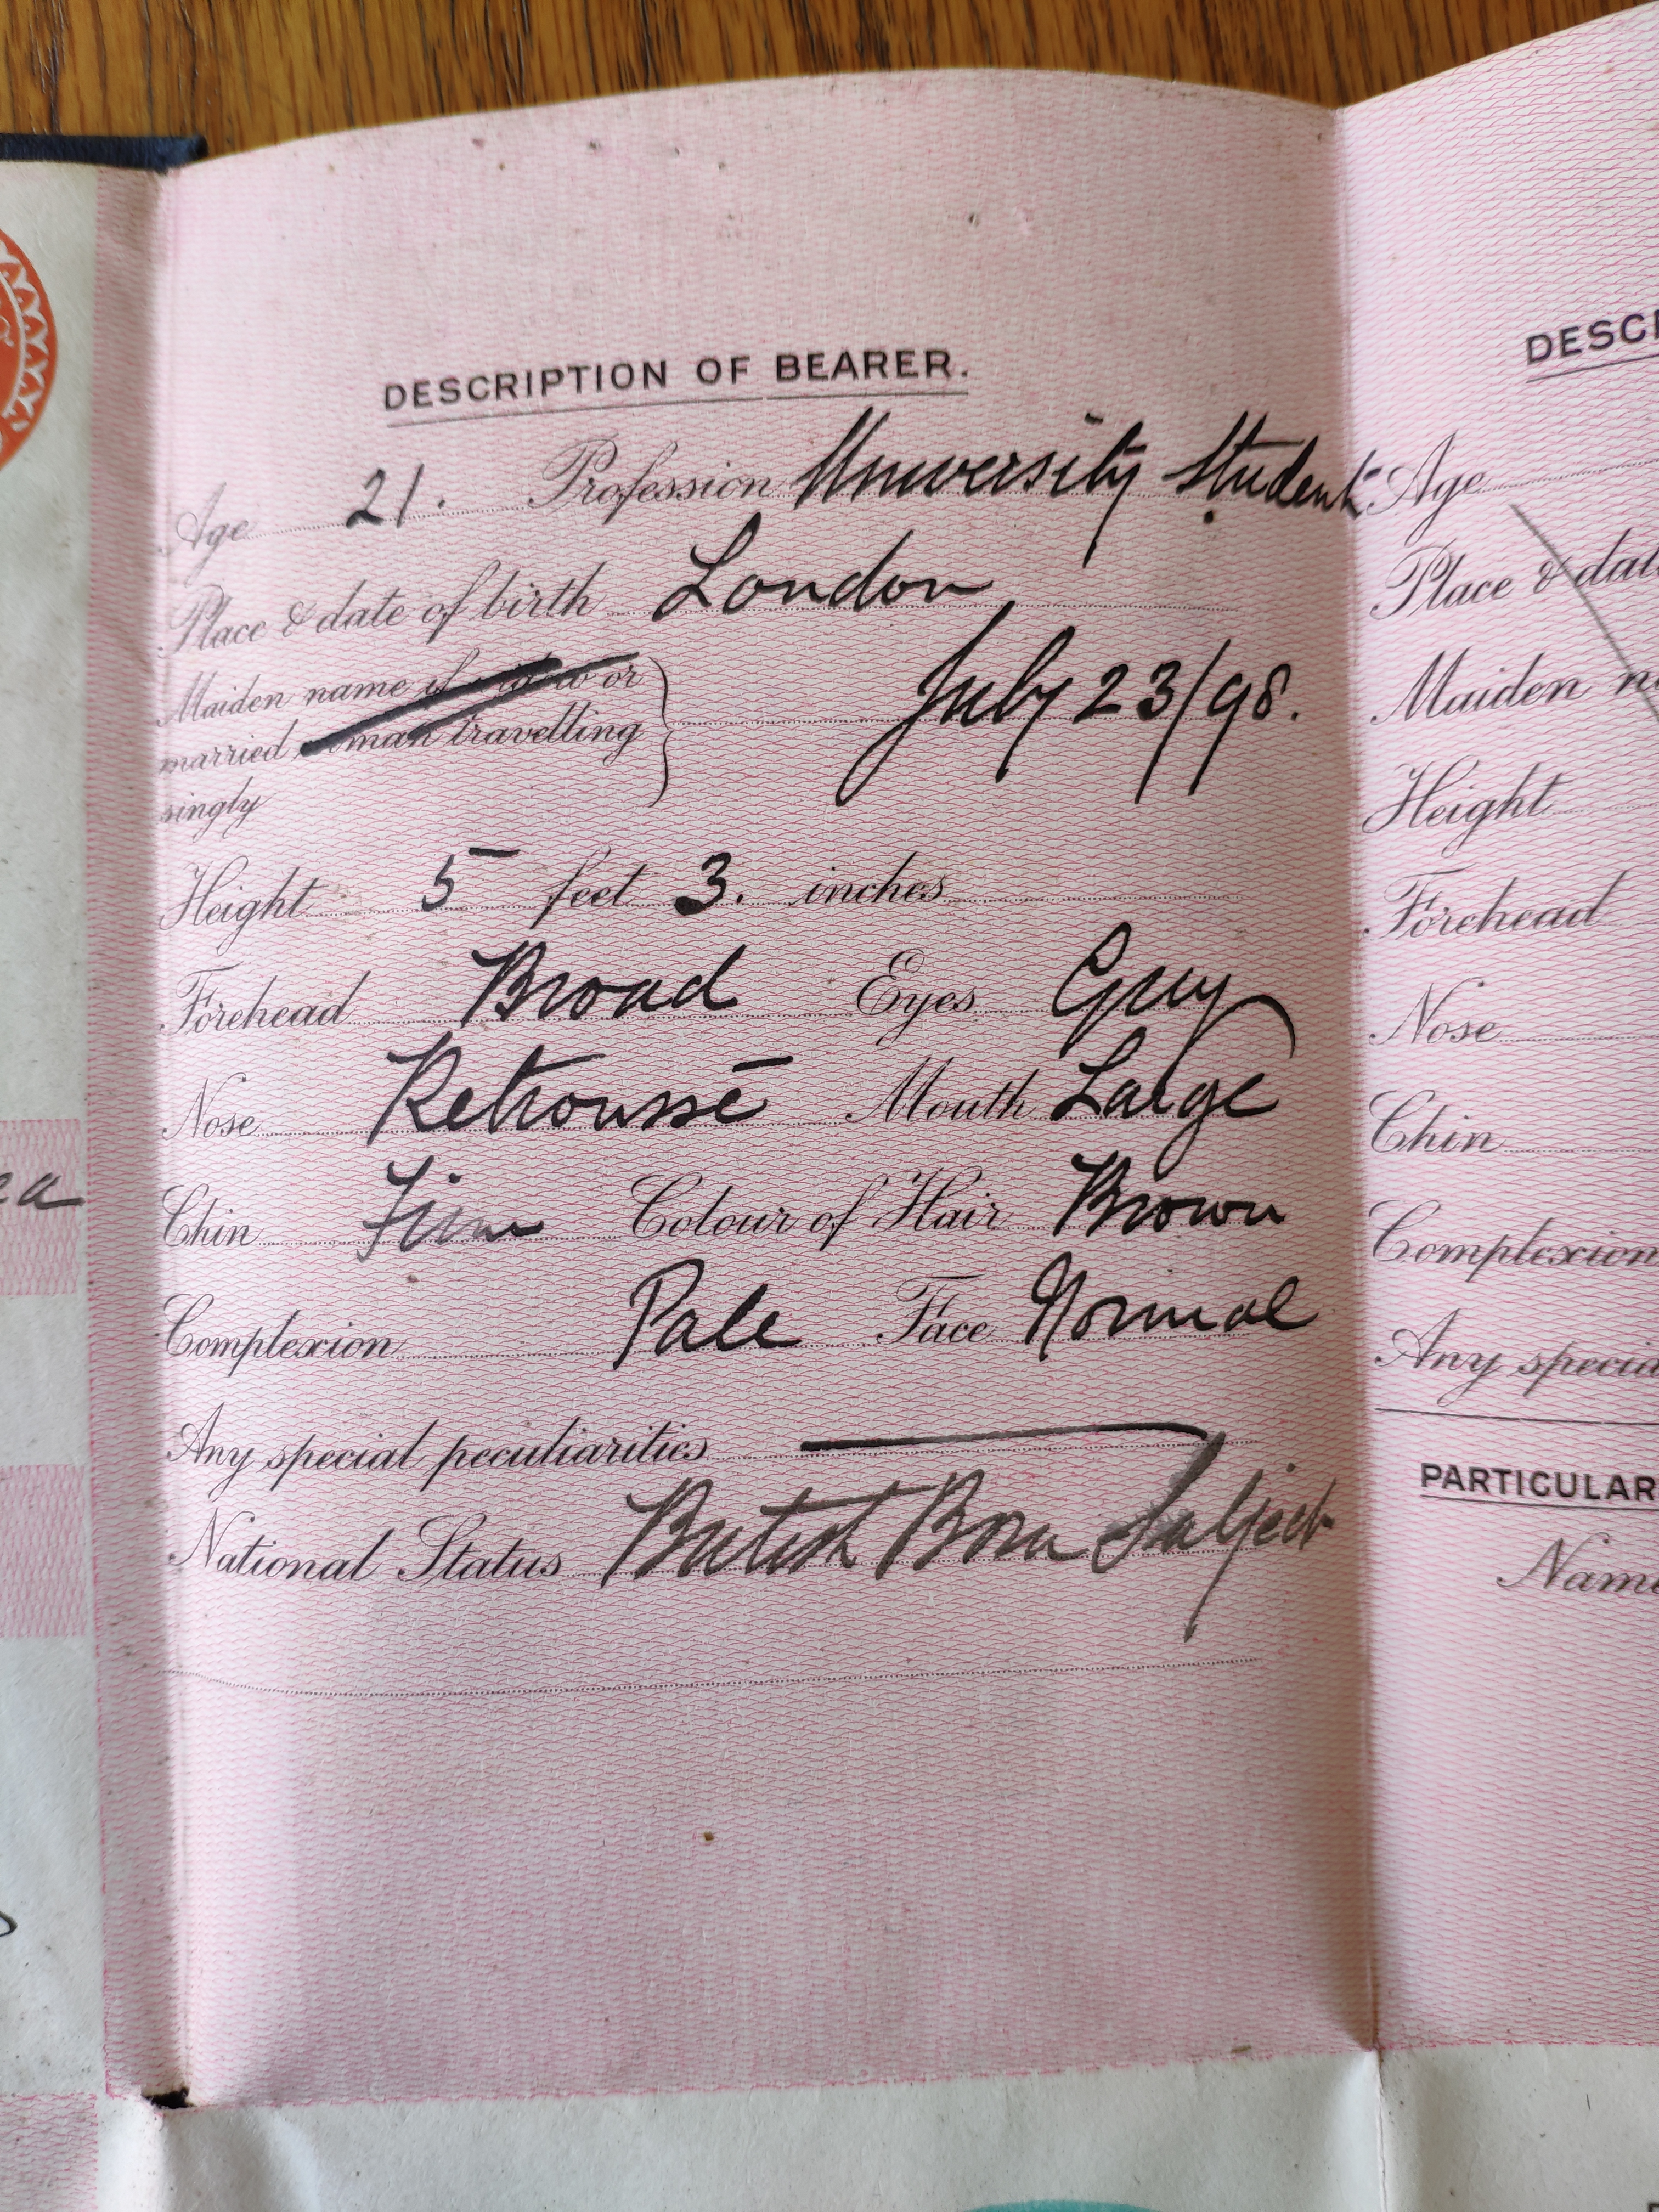 DESCRIPTION OF BEARER.
Age 21. Profession University Student
Place & date of birth London
Maiden name if widow or
married woman travelling
singly
July 23/98.
Height 5 feet 3. inches
Forehead Broad Eyes Grey
Nose Retroussé Mouth Large
Chin Firm Colour of Hair Brown
Complexion Pale Face Normal
Any special peculiarities
National Status British Born Subject
DESC
Age
Place & dat
Maiden n
Height
Forehead
Nose
Chin
Complexion
Any specia
PARTICULAR
Nam